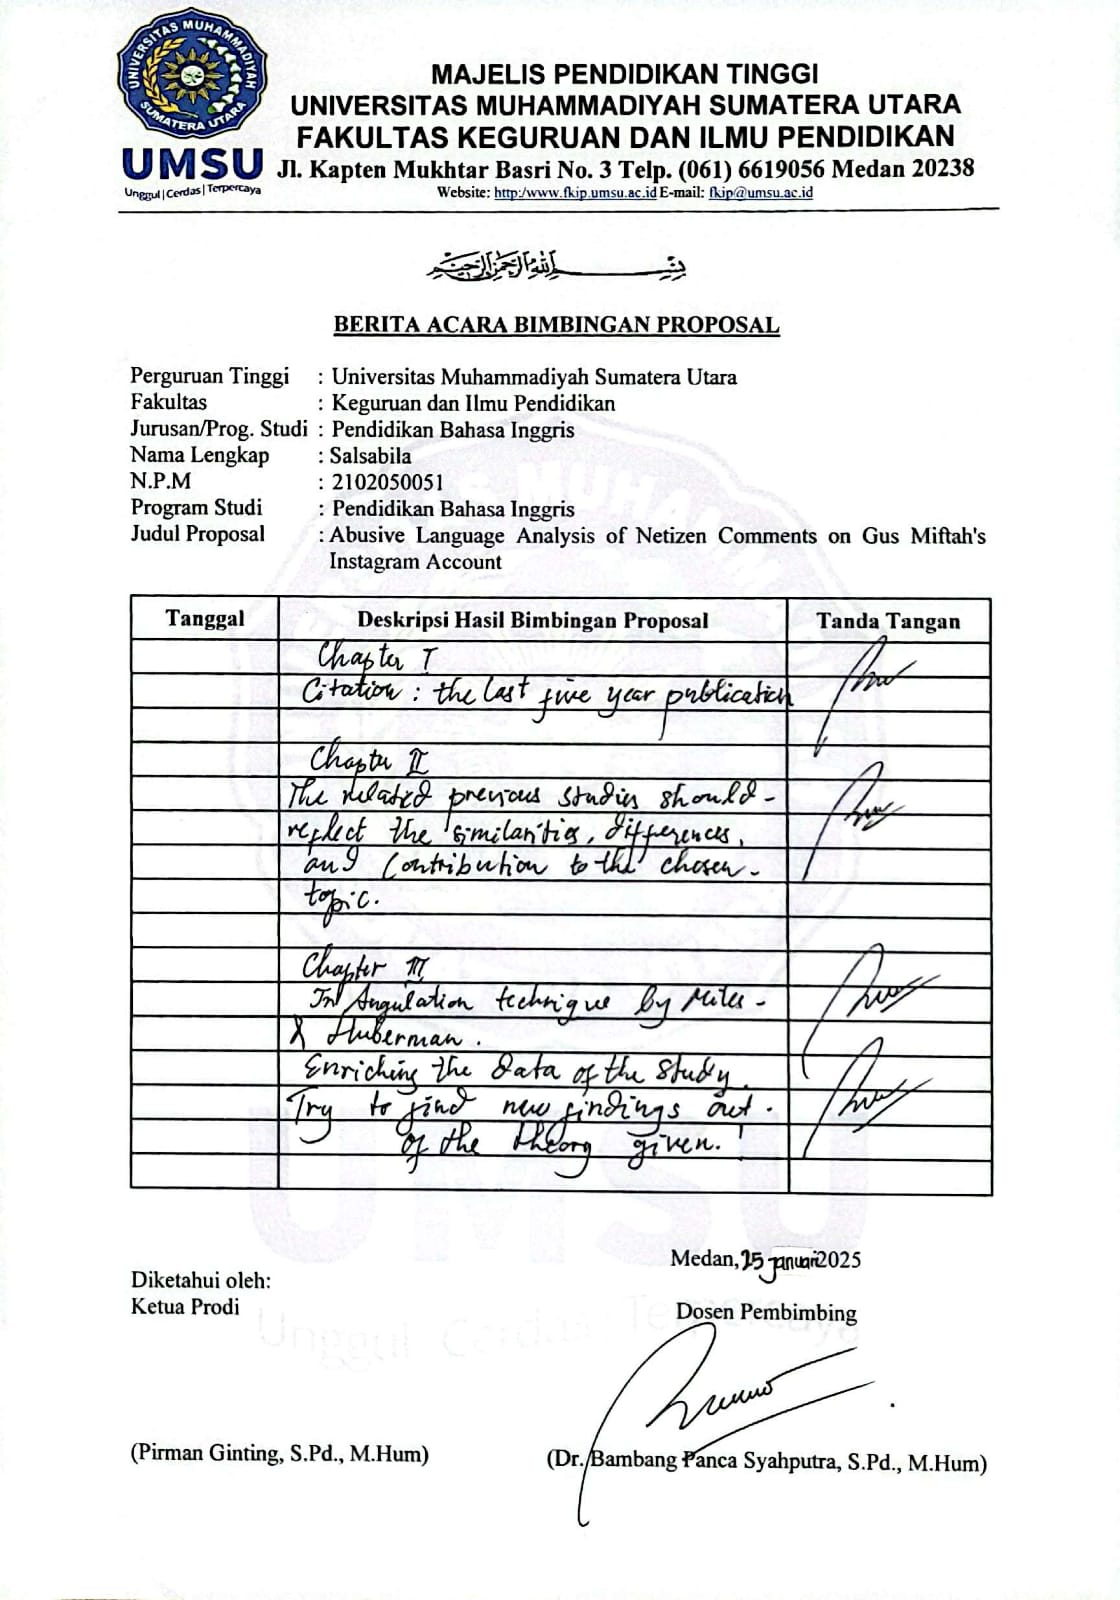 UNIVERSITAS MUHAMMADIYAH
SUMATERA UTARA
UMSU
Unggul | Cerdas | Terpercaya
MAJELIS PENDIDIKAN TINGGI
UNIVERSITAS MUHAMMADIYAH SUMATERA UTARA
FAKULTAS KEGURUAN DAN ILMU PENDIDIKAN
Jl. Kapten Mukhtar Basri No. 3 Telp. (061) 6619056 Medan 20238
Website: http:/www.fkip.umsu.ac.id E-mail: fkip@umsu.ac.id
بسم الله الرحمن الرحيم
BERITA ACARA BIMBINGAN PROPOSAL
Perguruan Tinggi : Universitas Muhammadiyah Sumatera Utara
Fakultas : Keguruan dan Ilmu Pendidikan
Jurusan/Prog. Studi : Pendidikan Bahasa Inggris
Nama Lengkap : Salsabila
N.P.M : 2102050051
Program Studi : Pendidikan Bahasa Inggris
Judul Proposal : Abusive Language Analysis of Netizen Comments on Gus Miftah's
Instagram Account
Tanggal Deskripsi Hasil Bimbingan Proposal Tanda Tangan
Chapter I
Citation : the last five year publication
Chapter II
The related previous studies should -
reflect the similarities, differences,
and Contribution to the chosen -
topic.
Chapter III
Triangulation technique by Miles -
& Huberman.
Enriching the data of the study.
Try to find new findings out -
of the theory given.
Medan, 25 januari 2025
Diketahui oleh:
Ketua Prodi
Dosen Pembimbing
(Pirman Ginting, S.Pd., M.Hum)
(Dr. Bambang Panca Syahputra, S.Pd., M.Hum)
UMSU
Unggul Cerdas Terpercaya